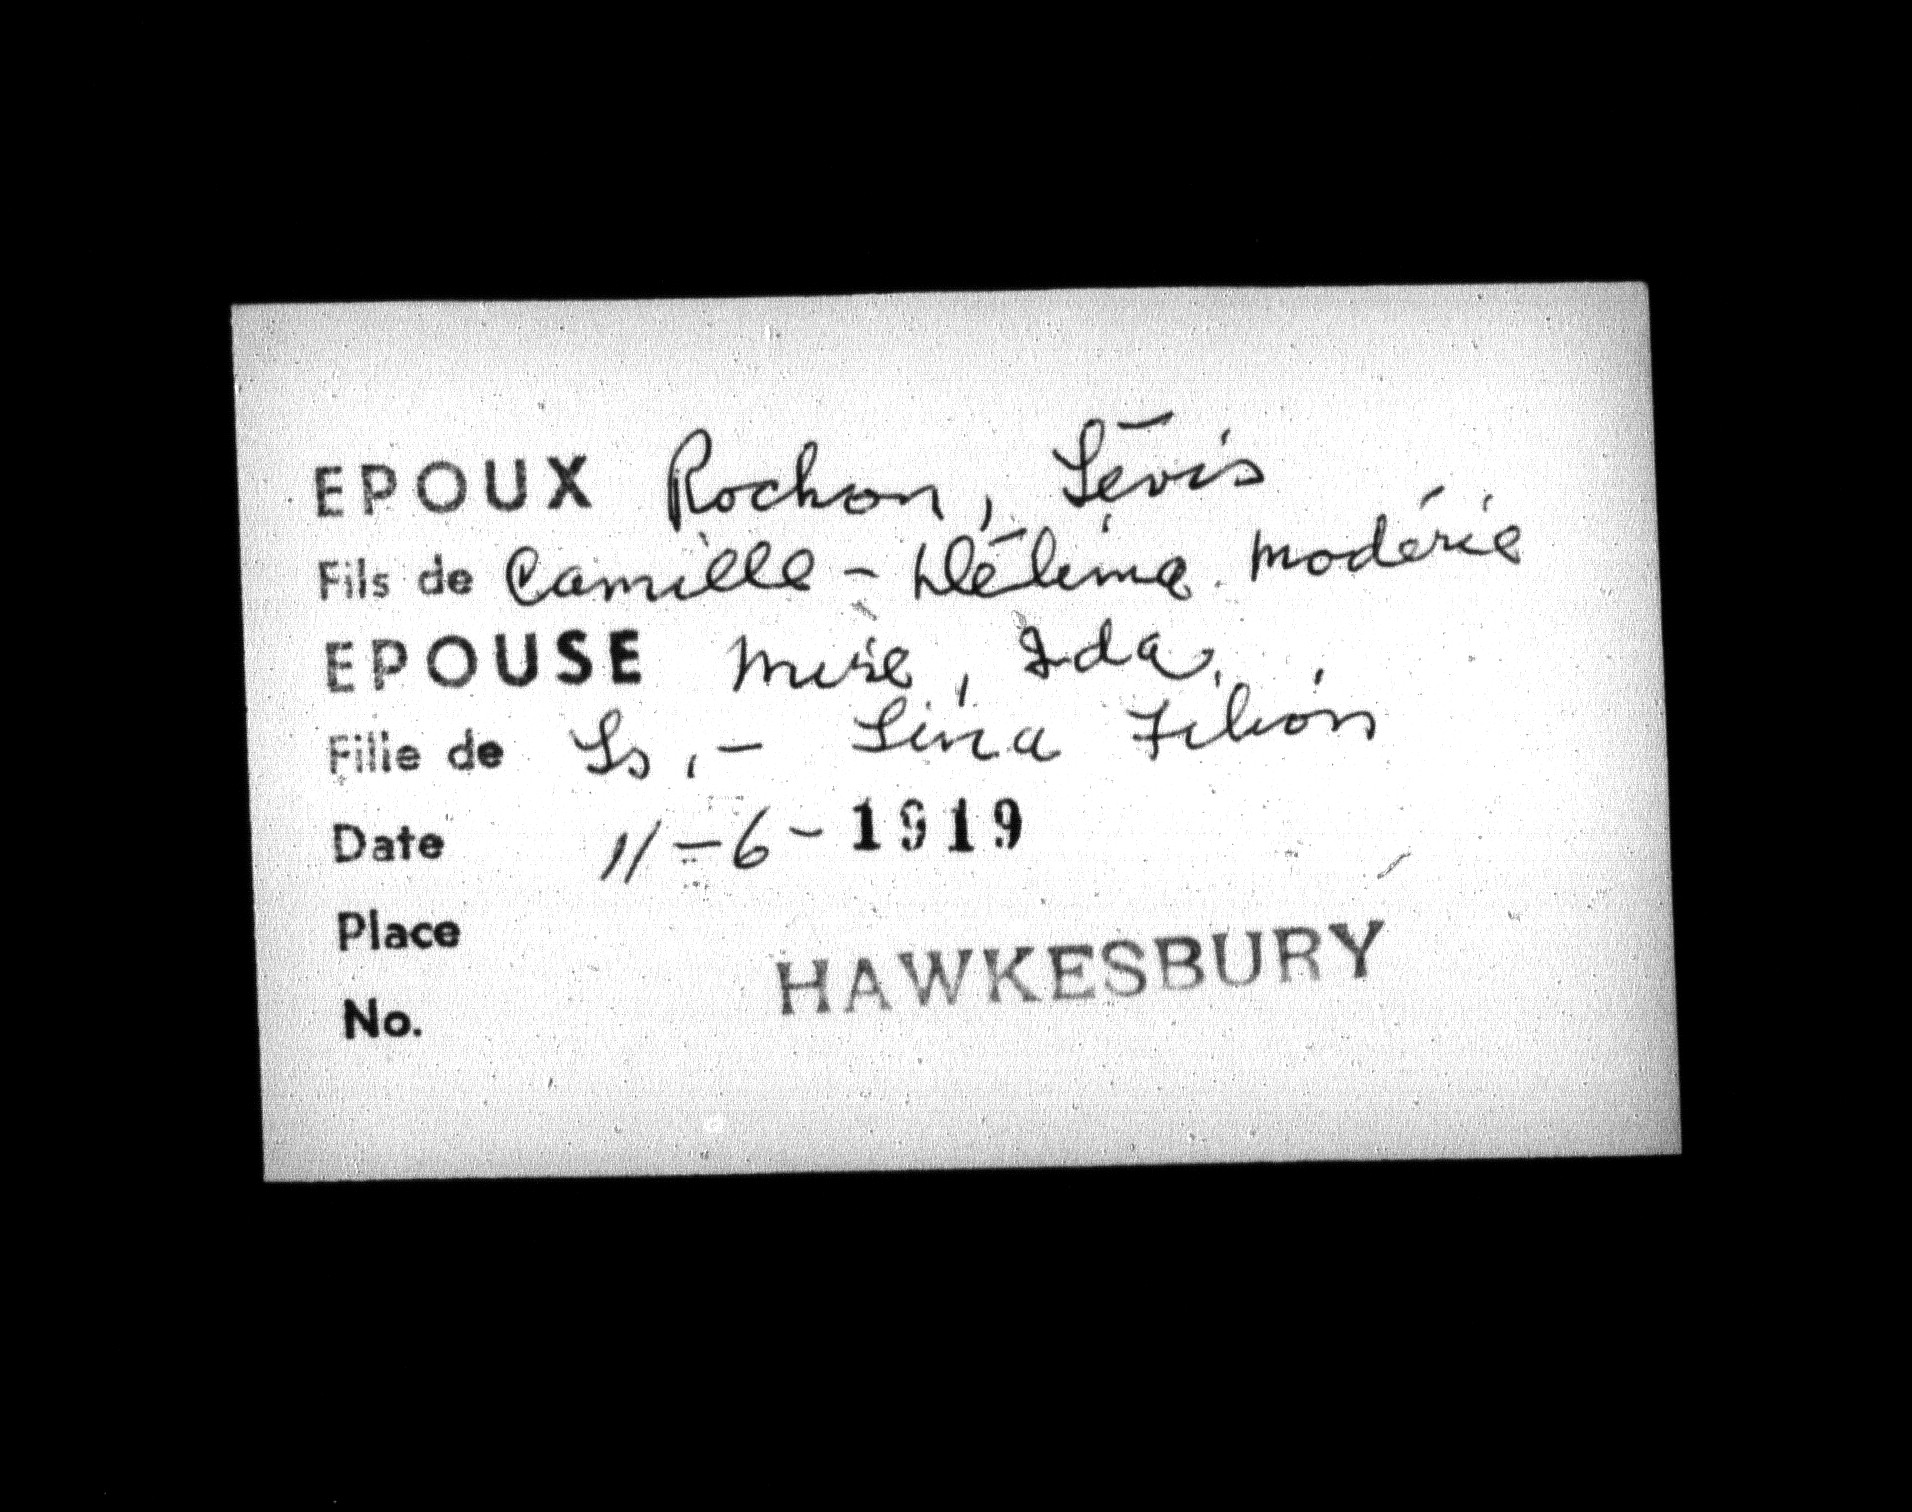 EPOUX Rochon, Lévis
Fils de Camille - Délima Modérie
EPOUSE Mire, Ida,
Fille de Ls, - Lina Filion
Date 11-6-1919
Place HAWKESBURY
No.